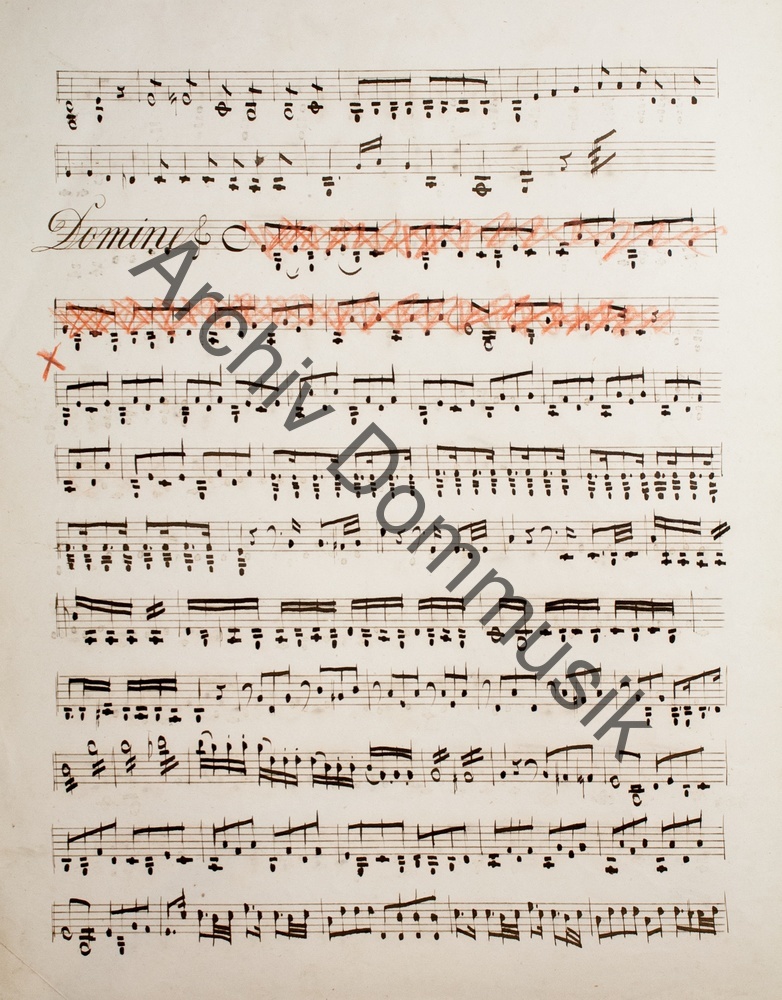 Domine
Archiv Dommusik